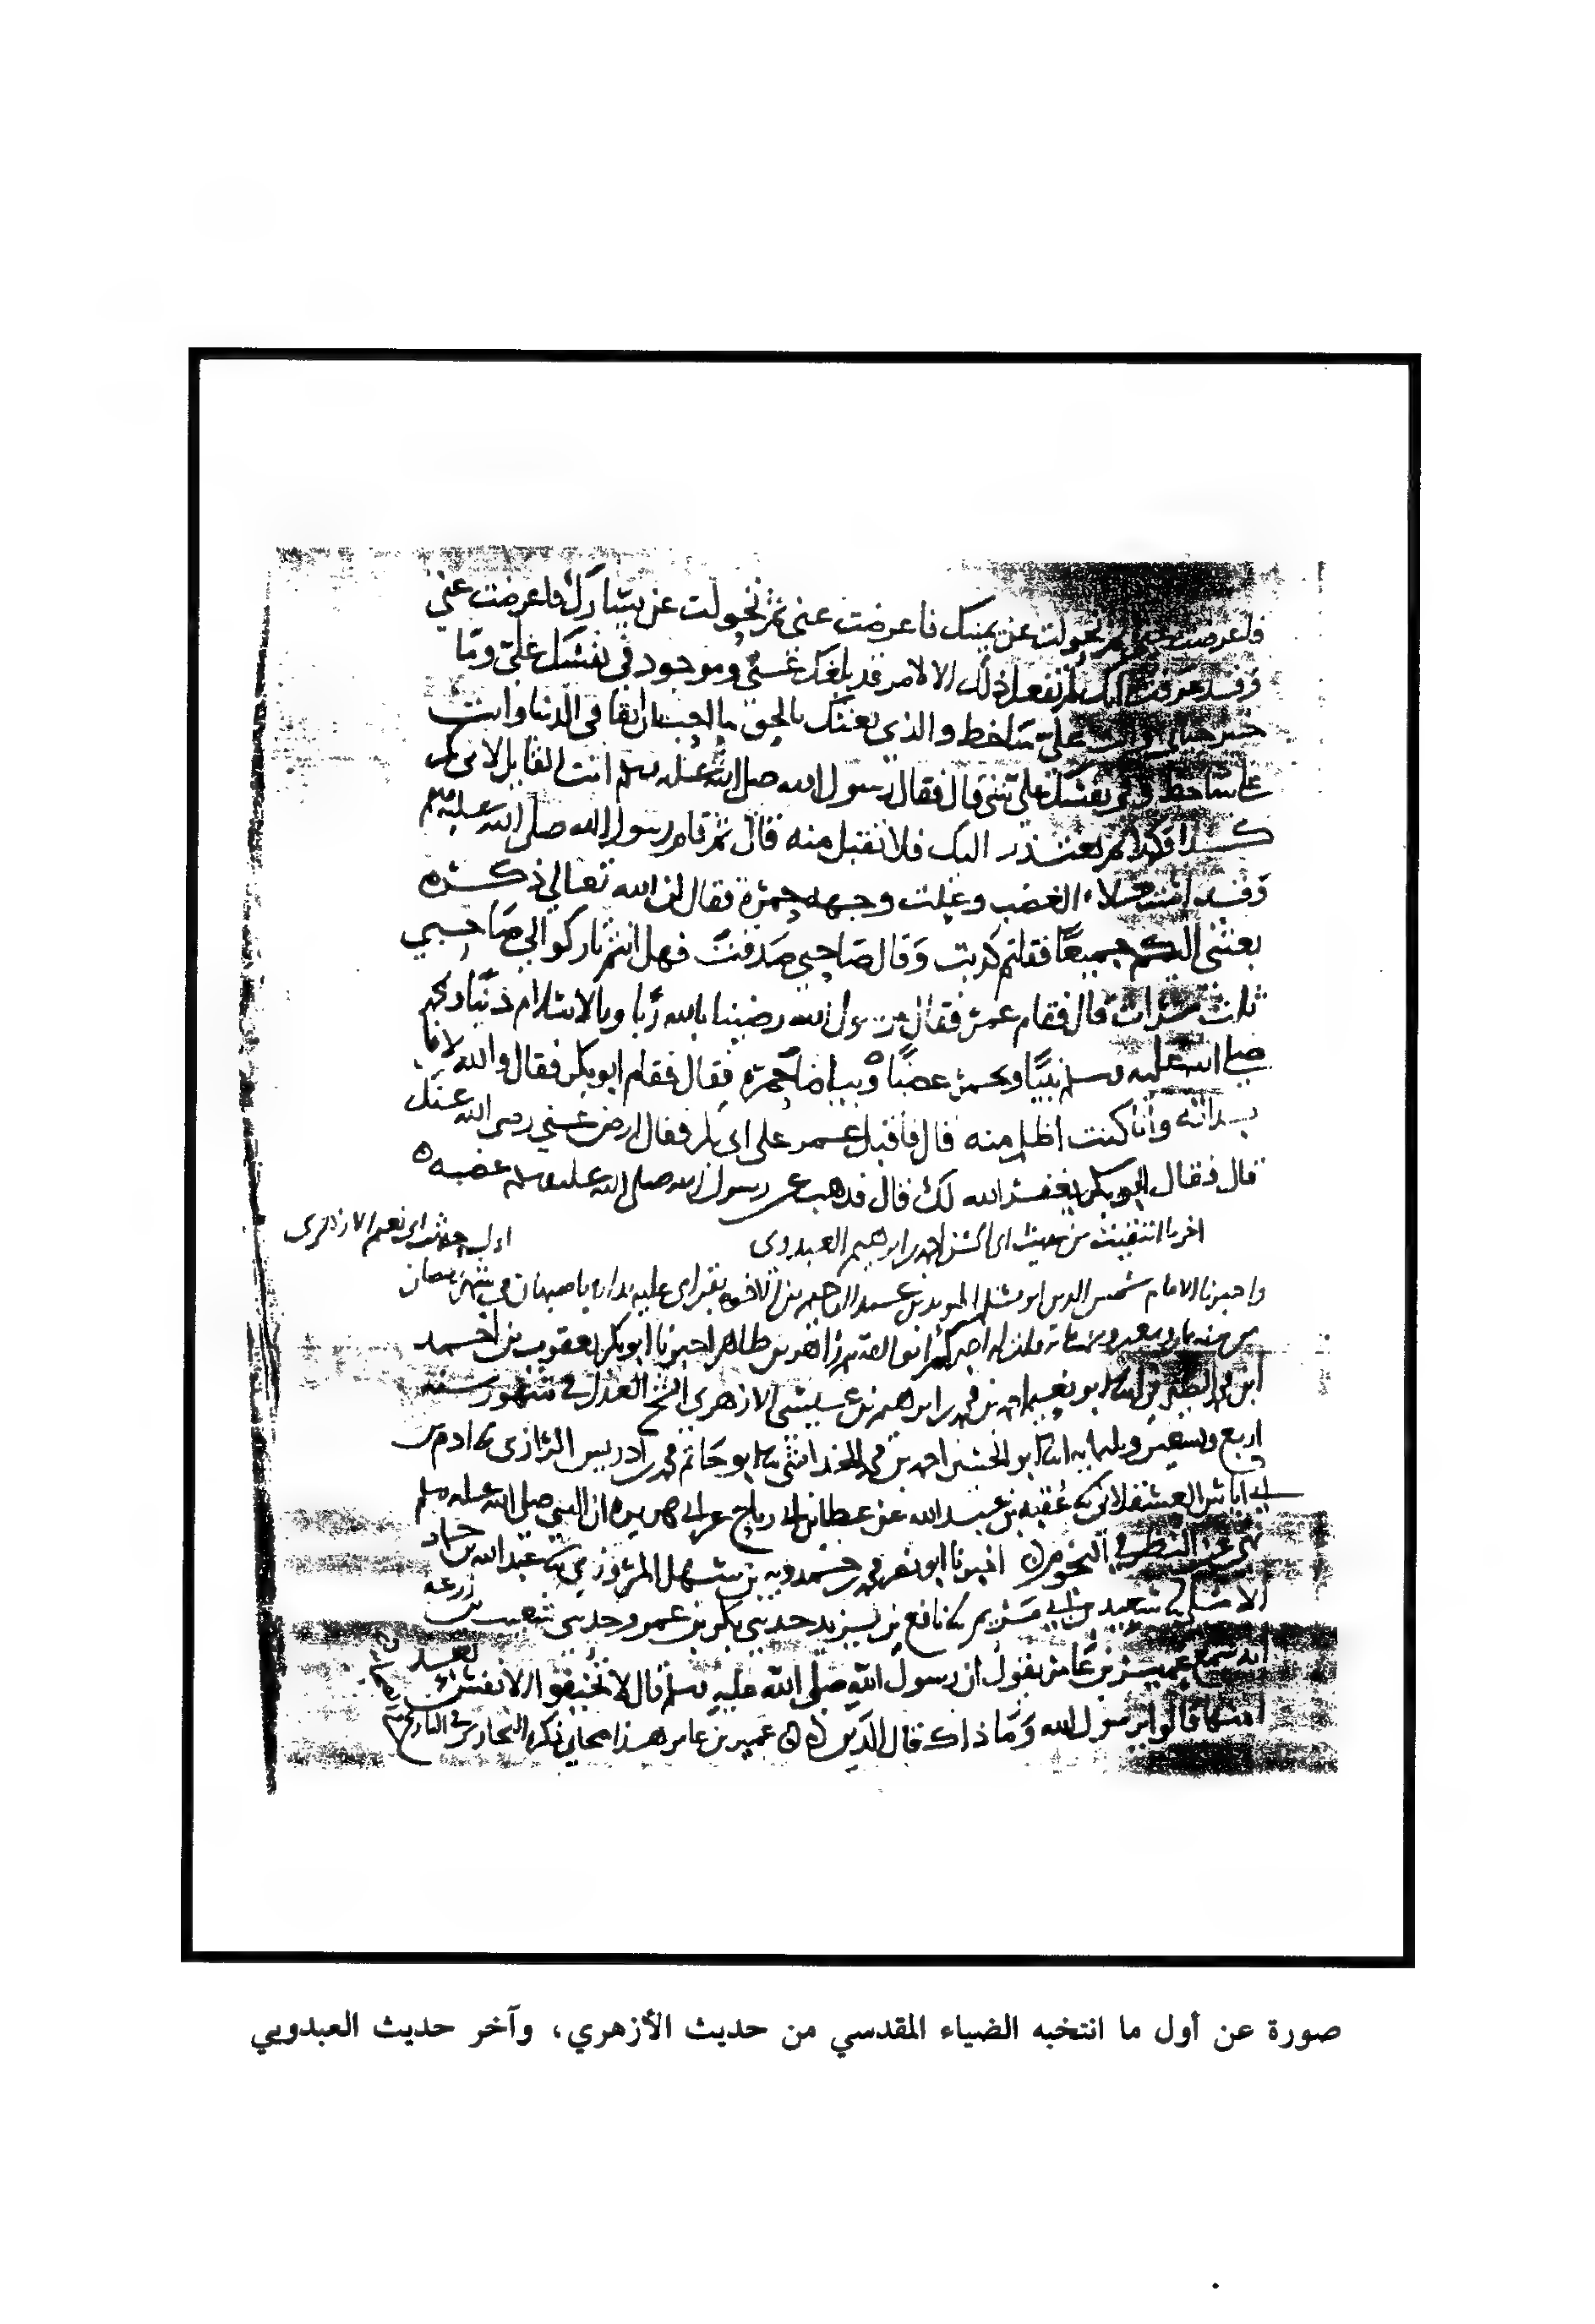 فاعرضت عني ثم تحولت عن يمينك فاعرضت عني ثم تحولت عن يسارك فاعرضت عني
وقد عرفت انك لم تفعل ذلك الا لامر قد بلغك عني وموجود في نفسك علي وما
خير حياتي وانت علي ساخط والذي بعثك بالحق ما احب ان ابقا في الدنيا وانت
علي ساخط وفي نفسك علي شي قال فقال رسول الله صلى الله عليه وسلم انت القايل لابي بكر
كذا وكذا ثم يعتذر اليك فلا تقبل منه قال ثم قام رسول الله صلى الله عليه وسلم
وقد امتلاء الغضب وعلت وجهه حمرة فقال ان الله تعالى ذكره
بعثني اليكم جميعا فقلتم كذبت وقال صاحبي صدقت فهل انتم تاركوا لي صاحبي
ثلاث مرات قال فقام عمر فقال رسول الله رضينا بالله ربا وبالاسلام دينا وبمحمد
صلى الله عليه وسلم نبيا فقال فقام ابو بكر فقال والله لانا
بداته وانا كنت اظلم منه قال فاقبل عمر على ابي بكر فقال ارض عني رضي الله عنك
قال فقال ابو بكر يغفر الله لك قال فذهب عن رسول الله صلى الله عليه وسلم غضبه
اخر ما انتقيت من حديث ابي الحسن احمد بن ابراهيم العبدوي
اول حديث ابي نعيم الازهري
واخبرنا الامام شمس الدين ابو مسلم المويد بن عبد الرحيم بن الاخوة بقراءتي عليه بداره باصبهان في شهر رمضان
اخبركم ابو القاسم زاهر بن طاهر اخبرنا ابو بكر يعقوب بن احمد
ابن محمد الصيرفي ابنا ابو نعيم احمد بن محمد بن ابراهيم بن عيسى الازهري الشيخ العدل في شهور سنة
اربع وتسعين وثلثمايه ابنا ابو الحسن احمد بن محمد ثنا ابو حاتم محمد بن ادريس الرازي ثنا ادم بن
ابي اياس العسقلاني ثنا عقبة بن عبد الله عن عطا بن ابي رباح عن ابي هريره ان النبي صلى الله عليه وسلم
نهى عن النظر في النجوم اخبرنا ابو نصر محمد بن حمدويه بن سهل المروزي ثنا عبد الله بن حماد
الاملي ثنا سعيد بن ابي مريم ثنا نافع بن يزيد حدثني بكر بن عمرو حدثني شعيب بن زرعه
انه سمع عمير بن عامر يقول ان رسول الله صلى الله عليه وسلم قال لا تخيفوا الانفس بعد
امنها قالوا يرسول الله وما ذاك قال الدين عمير بن عامر هذا صحابي ذكره البخاري في التاريخ
صورة عن أول ما انتخبه الضياء المقدسي من حديث الأزهري، وآخر حديث العبدويي